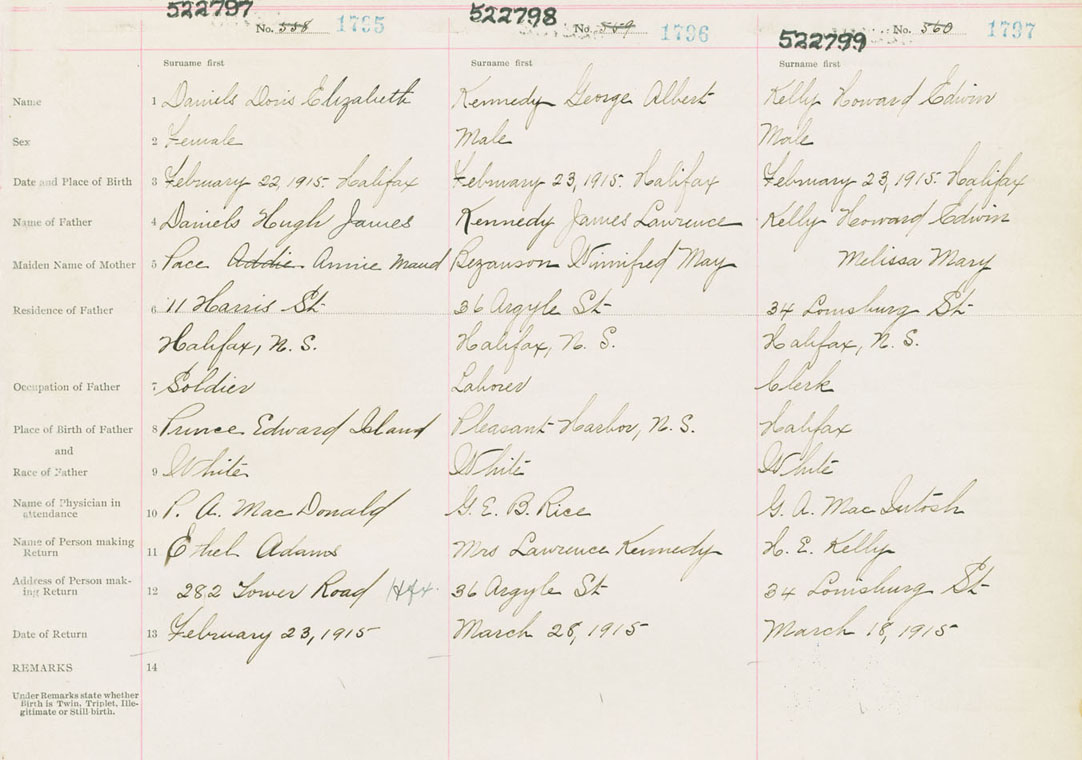 522797 522798 522799
No. 558 1795 No. 559 1796 No. 560 1797
Surname first Surname first Surname first
Name 1 Daniels Doris Elizabeth Kennedy George Albert Kelly Howard Edwin
Sex 2 Female Male Male
Date and Place of Birth 3 February 22, 1915. Halifax February 23, 1915. Halifax February 23, 1915. Halifax
Name of Father 4 Daniels Hugh James Kennedy James Lawrence Kelly Howard Edwin
Maiden Name of Mother 5 Pace Addie Annie Maud Bezanson Winnifred May Melissa Mary
Residence of Father 6 11 Harris St 36 Argyle St 34 Louisburg St
Halifax, N.S. Halifax, N.S. Halifax, N.S.
Occupation of Father 7 Soldier Laborer Clerk
Place of Birth of Father 8 Prince Edward Island Pleasant Harbor, N.S. Halifax
and
Race of Father 9 White White White
Name of Physician in
attendance 10 P. A. MacDonald G. E. B. Rice G. A. MacIntosh
Name of Person making
Return 11 Ethel Adams Mrs Lawrence Kennedy H. E. Kelly
Address of Person mak-
ing Return 12 282 Tower Road Hfx. 36 Argyle St 34 Louisburg St
Date of Return 13 February 23, 1915 March 28, 1915 March 18, 1915
REMARKS 14
Under Remarks state whether
Birth is Twin, Triplet, Ille-
gitimate or Still birth.